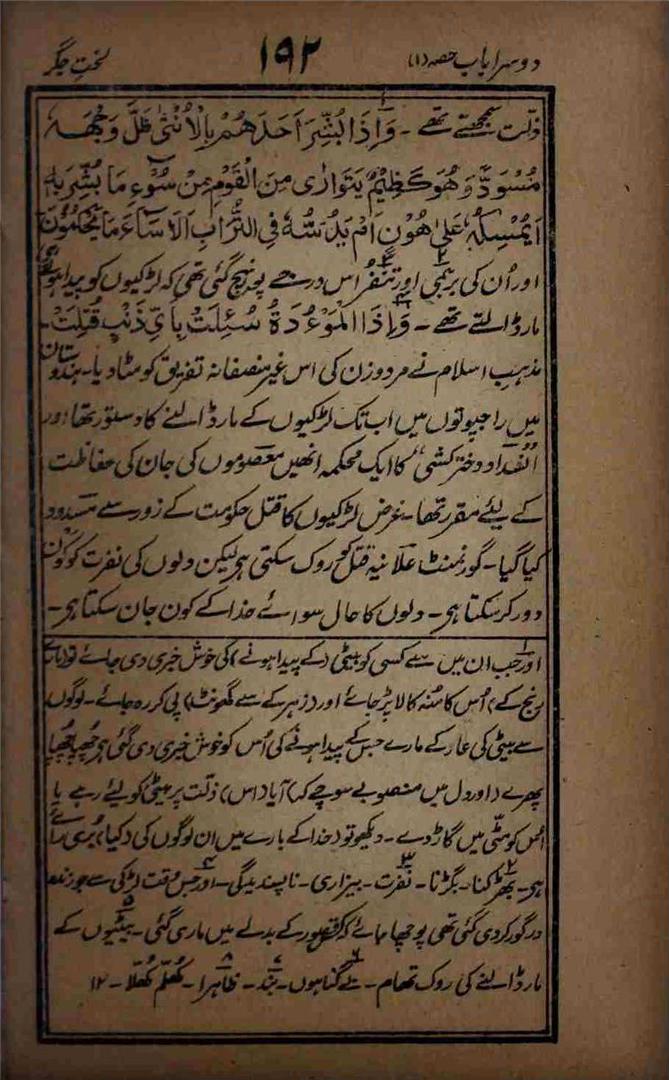 دوسرا باب حصہ (۱) ۱۹۲ لختِ جگر
ذلّت سمجھتے تھے ۔ وَاِذَا بُشِّرَ اَحَدَهُمْ بِالْاُنْثٰى ظَلَّ وَجْهَهٗ
مُسْوَدًّا وَّهُوَ كَظِيْمٌ يَتَوَارٰى مِنَ الْقَوْمِ مِنْ سُوْٓءِ مَا بُشِّرَ بِهٖ
اَيُمْسِكُهٗ عَلٰى هُوْنٍ اَمْ يَدُسُّهٗ فِى التُّرَابِ اَلَا سَآءَ مَا يَحْكُمُوْنَ
اور اُن کی برہمی۲ اور تنفّر۳ اس درجے پونہچ گئی تھی کہ لڑکیوں کو پیدا ہوتے ہی
مار ڈالتے تھے ۔ وَاِذَا۴ الْمَوْءُدَةُ سُئِلَتْ بِاَيِّ ذَنْبٍ قُتِلَتْ ۔
مذہبِ اسلام نے مرد و زن کی اس غیر منصفانہ تفریق کو مٹا دیا ۔ ہندوستان
میں راجپوتوں میں اب تک لڑکیوں کے مار ڈالنے کا دستور تھا اور
انسدادِ دختر کشی۵ کا ایک محکمہ انھیں معصوموں۶ کی جان کی حفاظت
کے لیئے مقرر تھا ۔ غرض لڑکیوں کا قتل حکومت کے زور سے مسدود۷
کیا گیا ۔ گورنمنٹ علانیہ۸ قتل کو روک سکتی ہی لیکن دلوں کی نفرت کو کون
دور کر سکتا ہی ۔ دلوں کا حال سوائے خدا کے کون جان سکتا ہی ۔
۱ اور جب ان میں سے کسی کو بیٹی (کے پیدا ہونے) کی خوش خبری دی جائے تو (مارے
رنج کے) اُس کا مُنہ کالا پڑ جائے اور (زہر کے سے گھونٹ) پی کر رہ جائے ۔ لوگوں
سے بیٹی کی عار کے مارے جس کے پیدا ہونے کی اُس کو خوش خبری دی گئی ہی چُھپا چُھپا
پھرے (اور دل میں منصوبے سوچے کہ) آیا (اس) ذلّت پر بیٹی کو لیئے رہے یا
اُس کو مٹّی میں گاڑ دے ۔ دیکھو تو (خدا کے بارے میں ان لوگوں کی (کیا) بُری رائے
ہی ۔ ۲ بھڑکنا ۔ بگڑنا ۔ ۳ نفرت ۔ بیزاری ۔ ناپسندیدگی ۔ ۴ اور جس وقت لڑکی سے جو زندہ
درگور کر دی گئی تھی پوچھا جائے کہ کس قصور کے بدلے میں ماری گئی ۔ ۵ بیٹیوں کے
مار ڈالنے کی روک تھام ۔ ۶ بے گناہوں ۔ ۷ بند ۔ ۸ ظاہرا ۔ کُھلم کُھلّا ۔ ۱۲